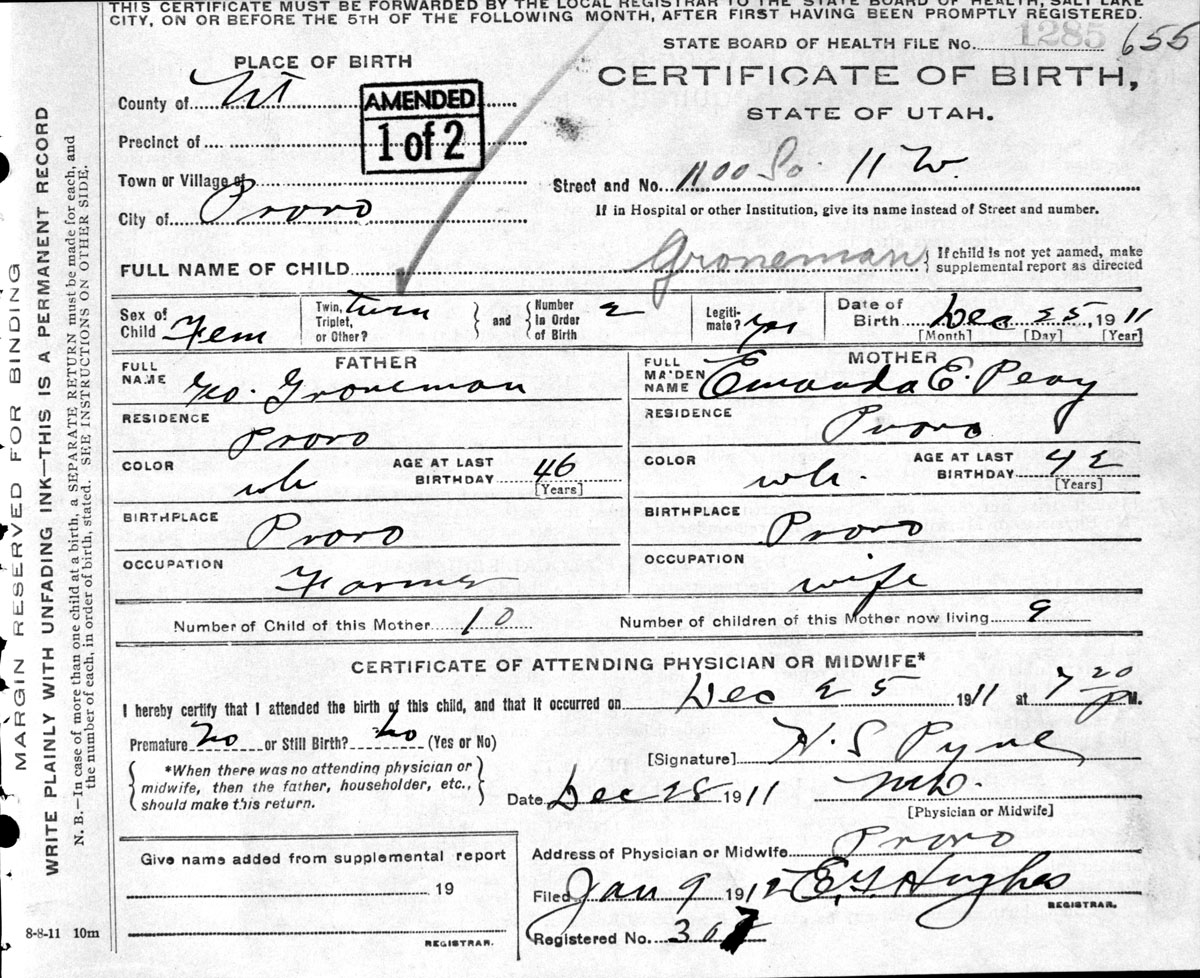 THIS CERTIFICATE MUST BE FORWARDED BY THE LOCAL REGISTRAR TO THE STATE BOARD OF HEALTH, SALT LAKE
CITY, ON OR BEFORE THE 5TH OF THE FOLLOWING MONTH, AFTER FIRST HAVING BEEN PROMPTLY REGISTERED.
STATE BOARD OF HEALTH FILE No. 1285 655
PLACE OF BIRTH
CERTIFICATE OF BIRTH,
STATE OF UTAH.
County of Ut
AMENDED
1 of 2
Precinct of
Town or Village of
Street and No. 1100 So. 11 W.
City of Provo
If in Hospital or other Institution, give its name instead of Street and number.
FULL NAME OF CHILD Groneman { If child is not yet named, make supplemental report as directed
Sex of Child Fem
Twin, Triplet, or Other? twin } and { Number in Order of Birth 2
Legitimate? yes
Date of Birth Dec 25, 1911
[Month] [Day] [Year]
FATHER
FULL NAME Geo. Groneman
RESIDENCE Provo
COLOR wh AGE AT LAST BIRTHDAY 46
[Years]
BIRTHPLACE Provo
OCCUPATION Farmer
MOTHER
FULL MAIDEN NAME Emanda E. Peay
RESIDENCE Provo
COLOR wh. AGE AT LAST BIRTHDAY 42
[Years]
BIRTHPLACE Provo
OCCUPATION wife
Number of Child of this Mother 10 Number of children of this Mother now living 9
CERTIFICATE OF ATTENDING PHYSICIAN OR MIDWIFE*
I hereby certify that I attended the birth of this child, and that it occurred on Dec 25 1911 at 7 20 P M.
Premature No or Still Birth? No (Yes or No)
*When there was no attending physician or
midwife, then the father, householder, etc.,
should make this return.
[Signature] H. S Pyne
Date Dec 28 1911 M.D.
[Physician or Midwife]
Give name added from supplemental report
19
REGISTRAR.
8-8-11 10m
Address of Physician or Midwife Provo
Filed Jan 9 1912 E. G Hughes
REGISTRAR.
Registered No.
MARGIN RESERVED FOR BINDING
WRITE PLAINLY WITH UNFADING INK—THIS IS A PERMANENT RECORD
N. B.—In case of more than one child at a birth, a SEPARATE RETURN must be made for each, and
the number of each, in order of birth, stated. SEE INSTRUCTIONS ON OTHER SIDE.